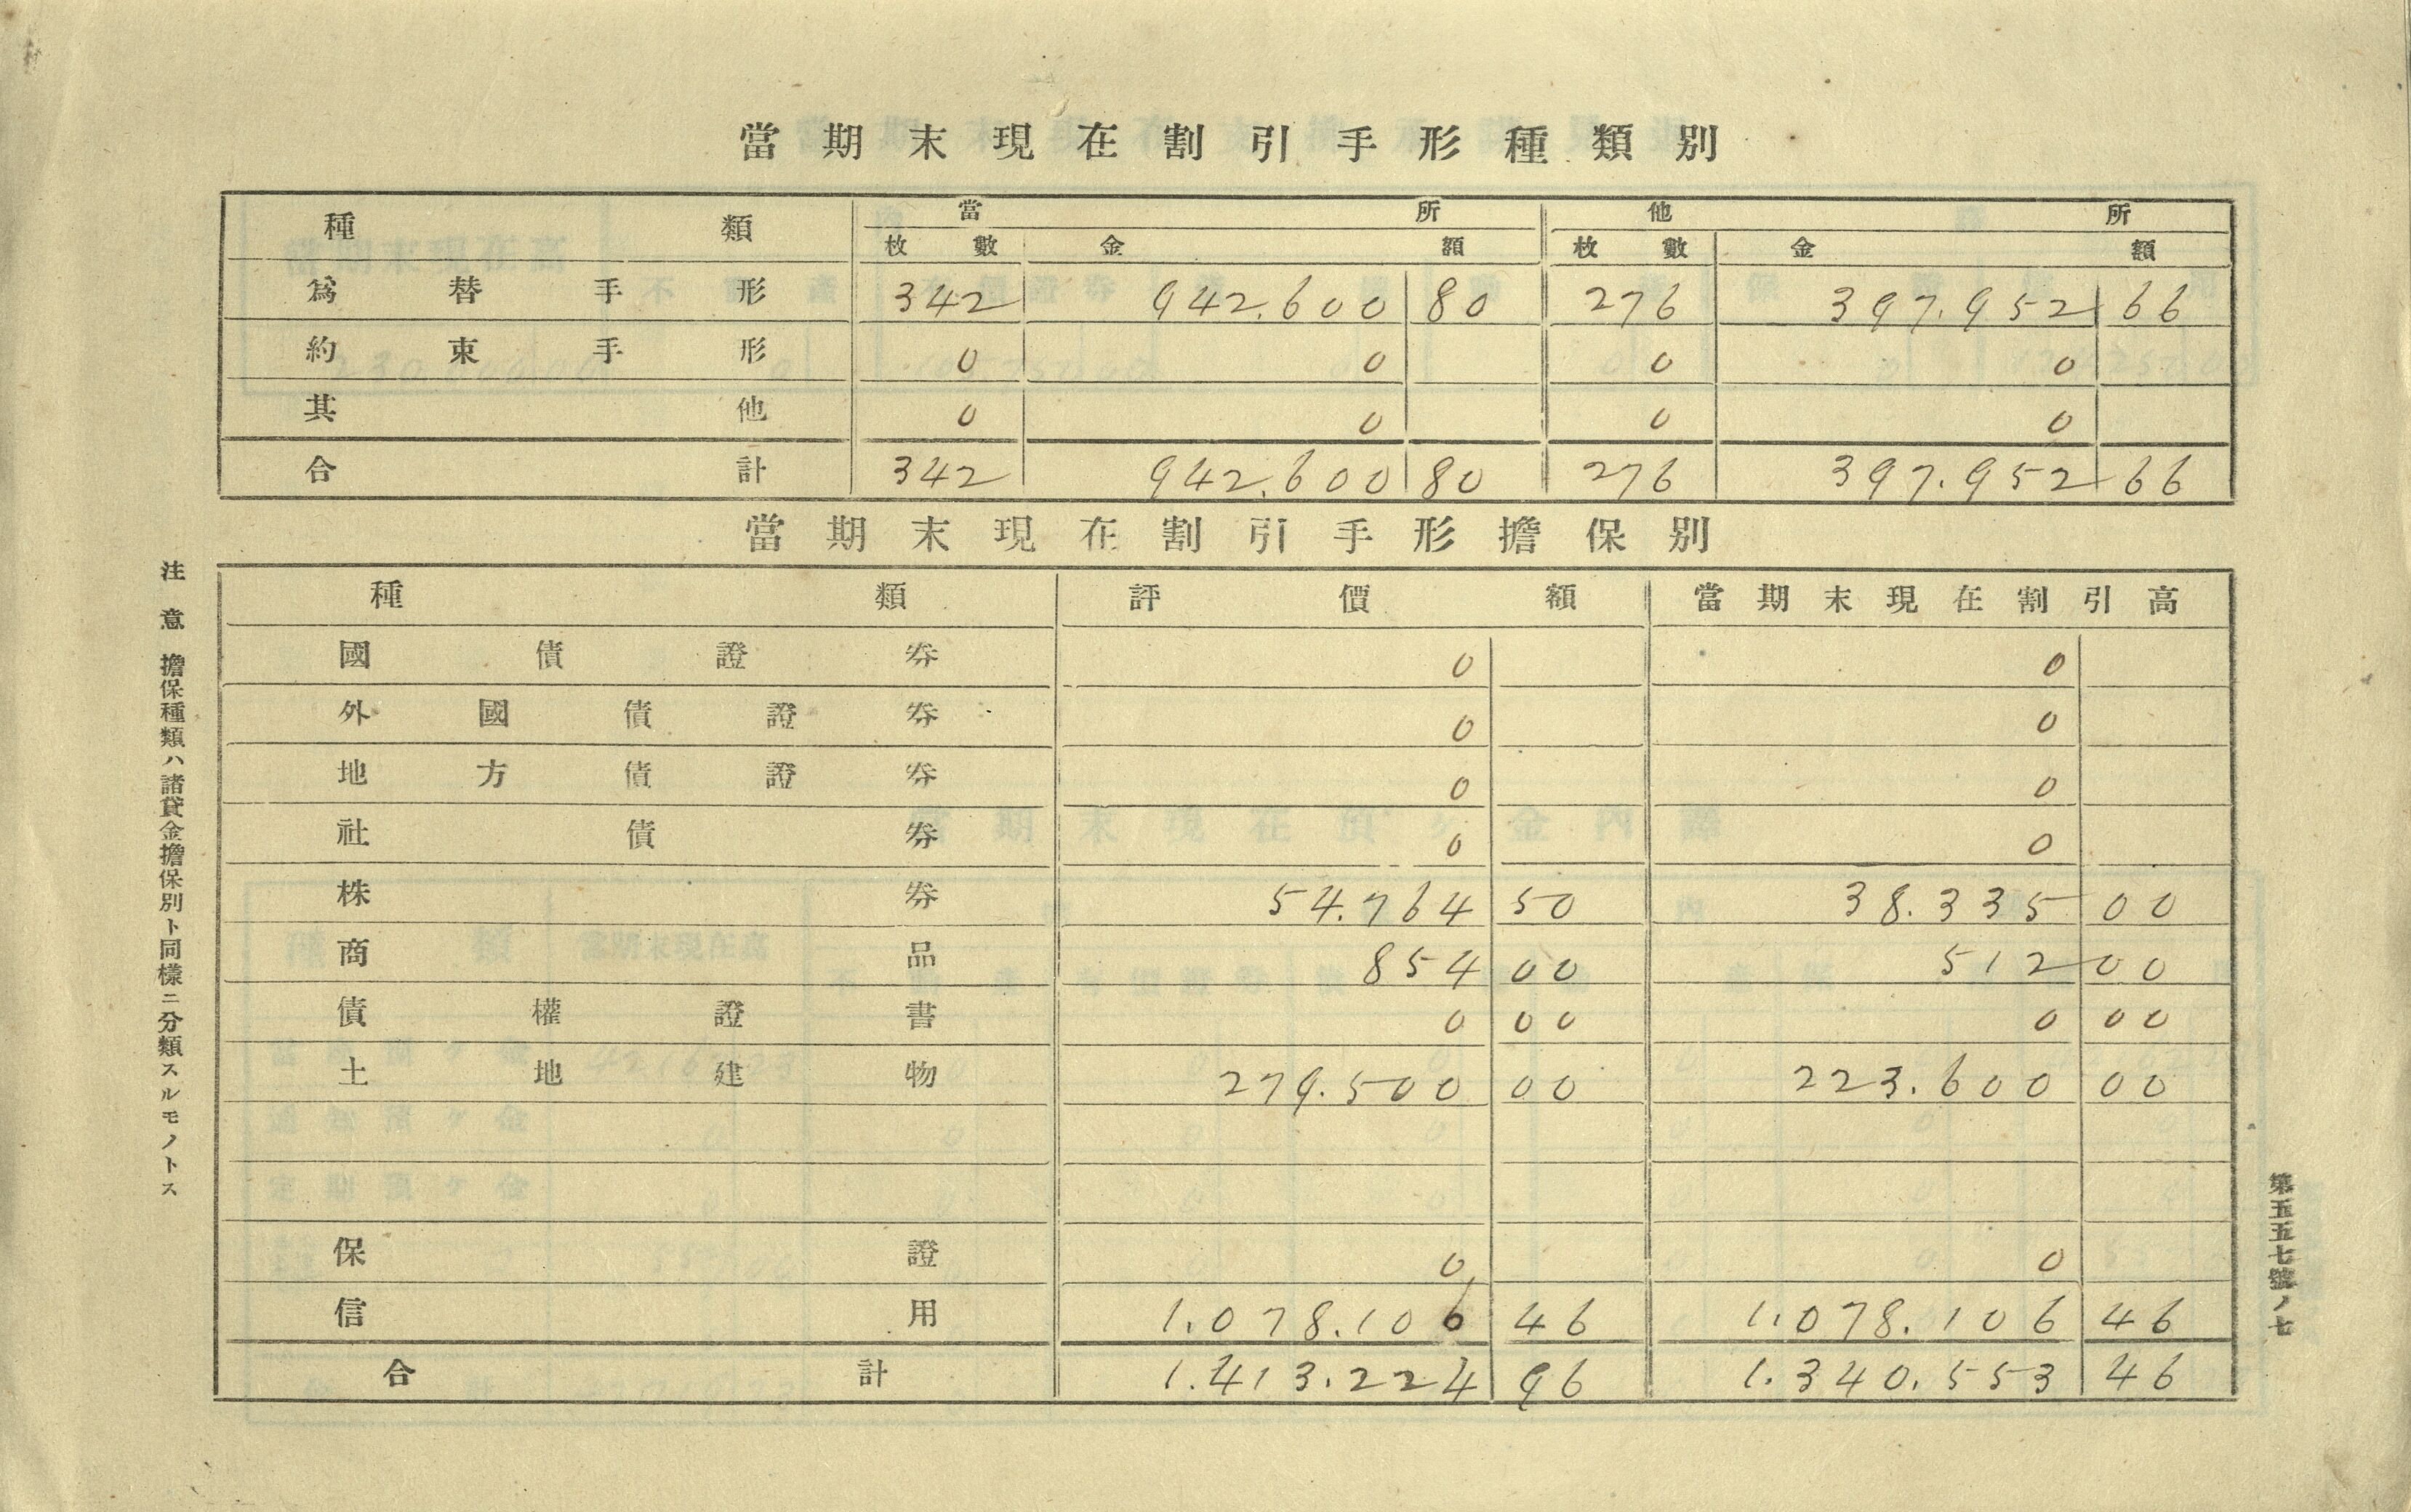 當期末現在割引手形種類別
種類 當所 他所
枚數 金額 枚數 金額
爲替手形 342 942.600 80 276 397.952 66
約束手形 0 0 0 0
其他 0 0 0 0
合計 342 942.600 80 276 397.952 66
當期末現在割引手形擔保別
種類 評價額 當期末現在割引高
國債證券 0 0
外國債證券 0 0
地方債證券 0 0
社債券 0 0
株券 54.764 50 38.335 00
商品 854 00 512 00
債權證書 0 00 0 00
土地建物 279.500 00 223.600 00
保證 0 0
信用 1.078.106 46 1.078.106 46
合計 1.413.224 96 1.340.553 46
注意 擔保種類ハ諸貸金擔保別ト同樣ニ分類スルモノトス
第五五七號ノ七